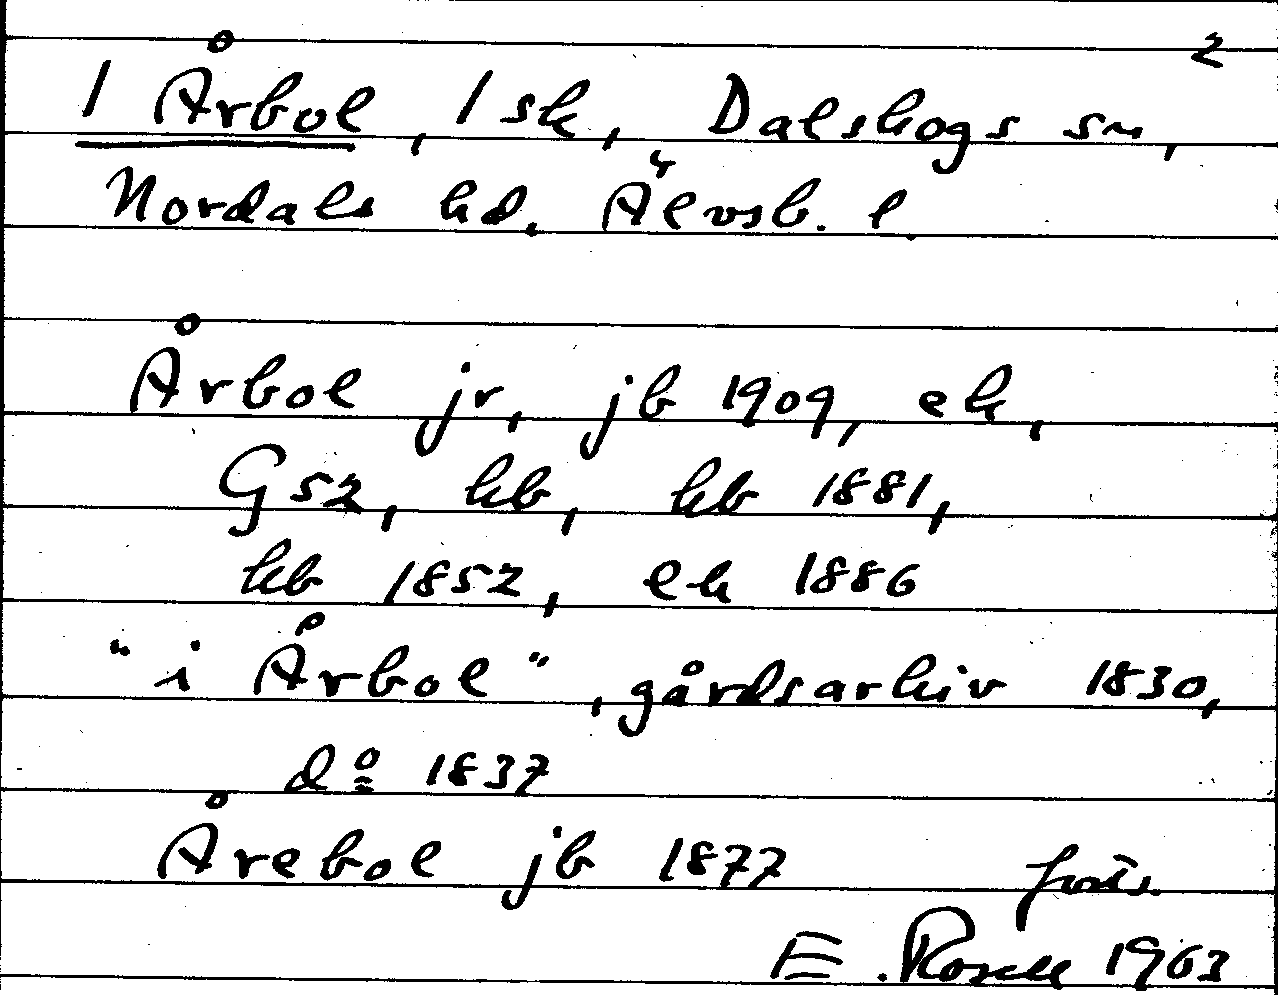 2
1 Årbol, 1 sk, Dalskogs sn,
Nordals hd. Älvsb. l.
Årbol jr, jb 1909, ek,
G52, kb, kb 1881,
kb 1852, ek 1886
"i Årbol", gårdsarkiv 1830,
do 1837
Årebol jb 1877 forts.
E. Rosell 1963